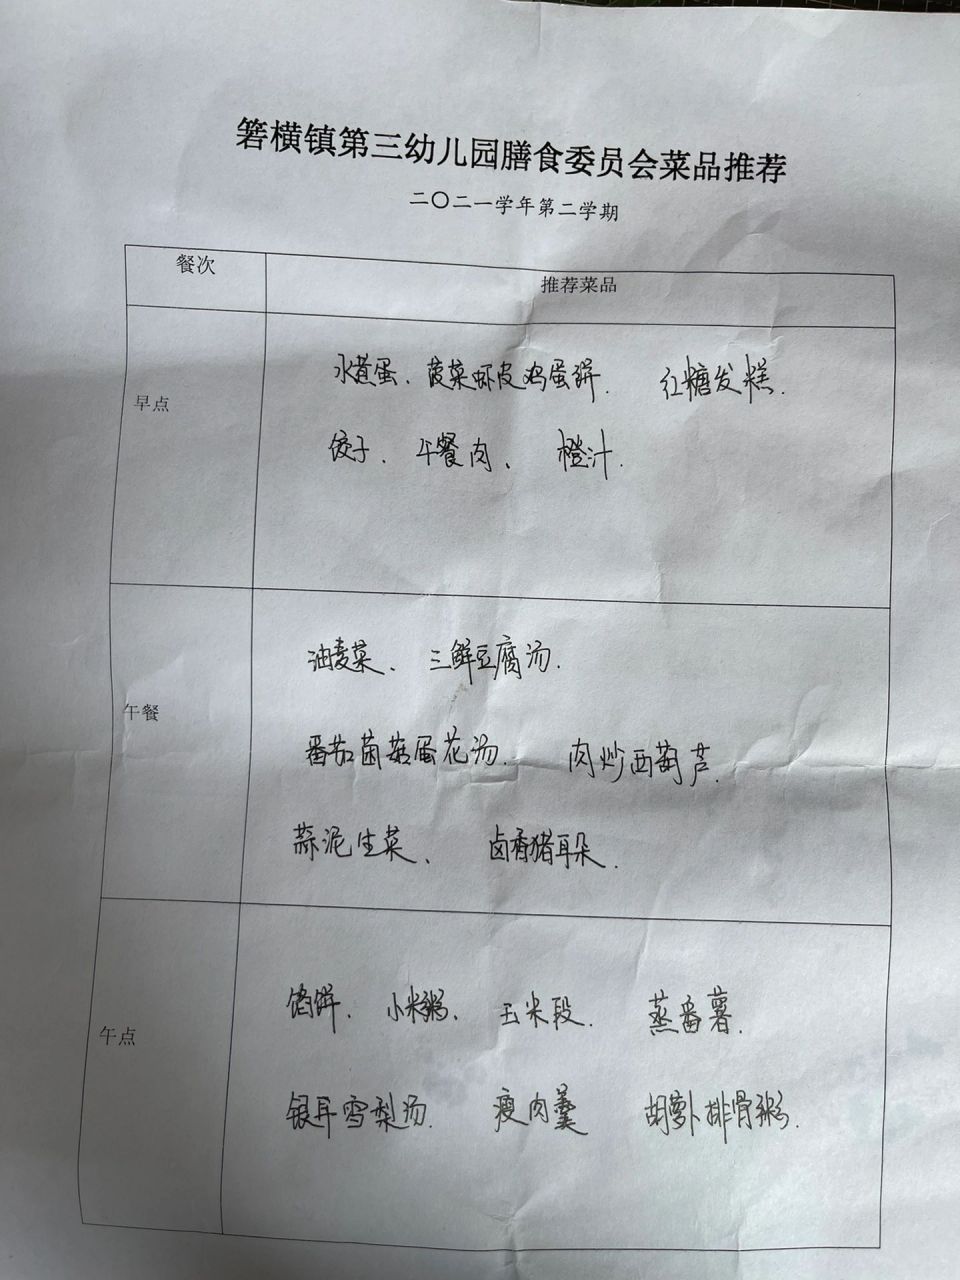 箬横镇第三幼儿园膳食委员会菜品推荐
二〇二一学年第二学期
餐次 推荐菜品
早点
水煮蛋、菠菜虾皮鸡蛋饼. 红糖发糕.
饺子. 午餐肉、 橙汁.
午餐
油麦菜、 三鲜豆腐汤.
番茄菌菇蛋花汤. 肉炒西葫芦.
蒜泥生菜、 卤香猪耳朵.
午点
馅饼. 小米粥. 玉米段. 蒸番薯.
银耳雪梨汤. 瘦肉羹 胡萝卜排骨粥.